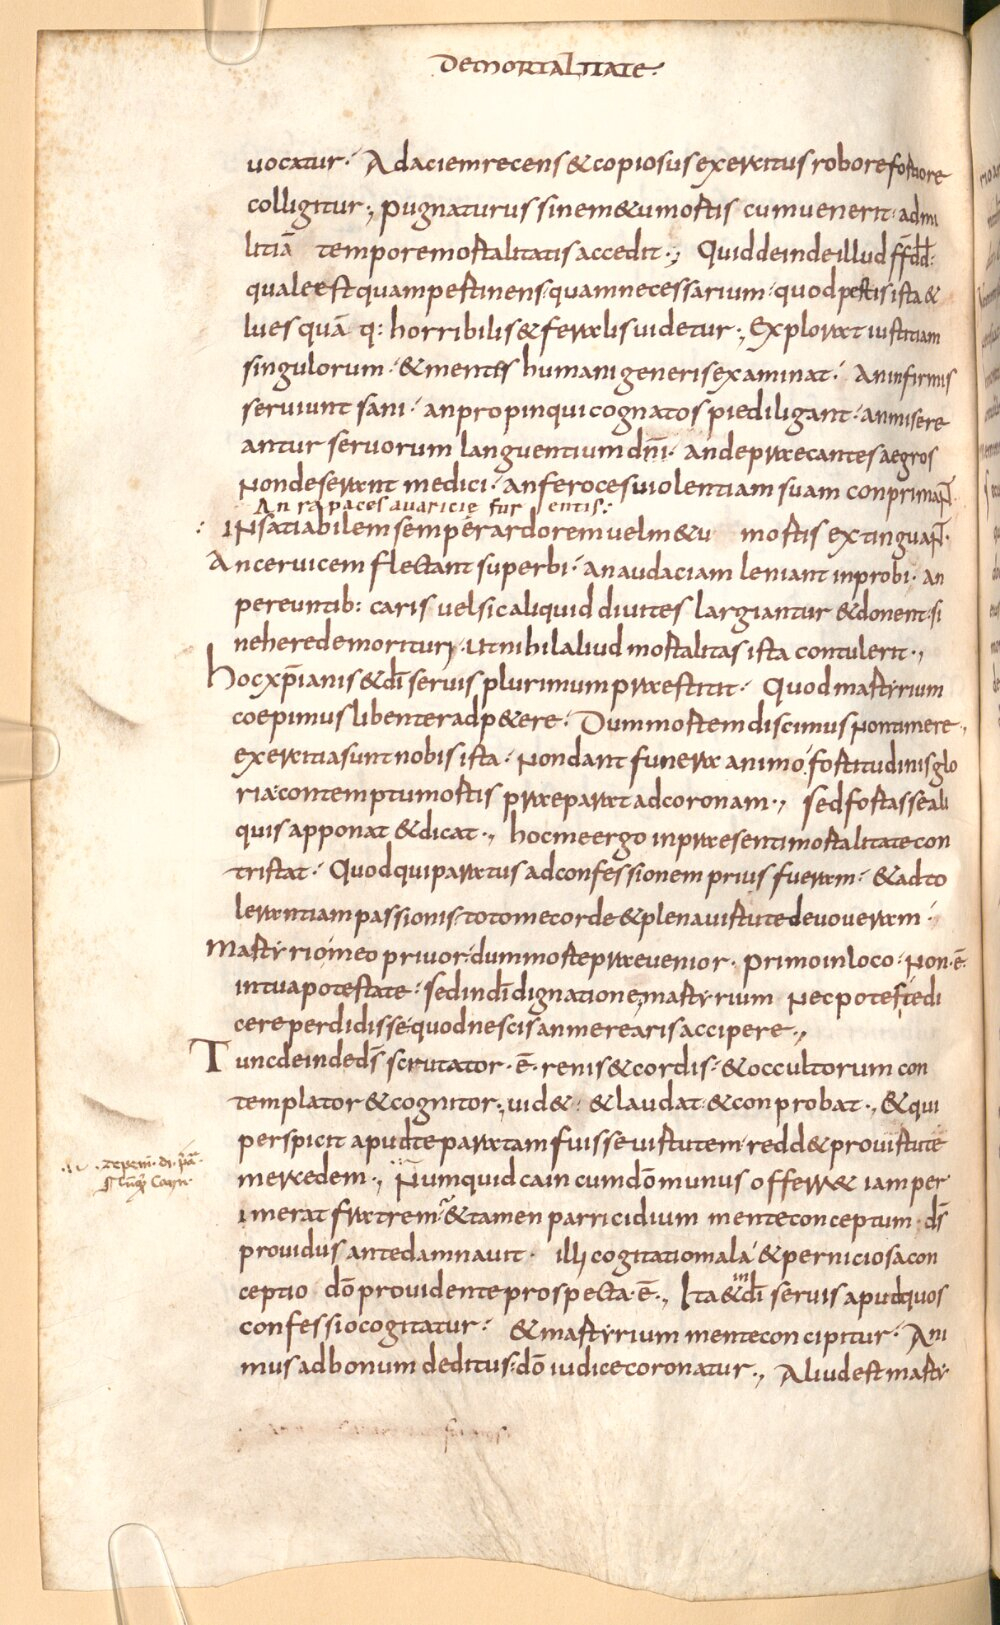 DEMORTALITATE·
uocatur· Adaciemrecens&copiosusexercitusroborefortiore
colligitur; pugnaturussinem&umortis cumuenerit·admi
litiā temporemortalitatisaccedit·; Quiddeindeillud ff̄dd̄·
qualeestquampertinens·quamnecessarium·quodpestisista&
luesquā q: horribilis&feralisuidetur; Explorat iustitiam
singulorum·&mentes humanigenerisexaminat· Aninfirmis
seruiunt sani· anpropinquicognatospiediligant·anmisere
antur seruorum languentiumdn̄i· andepraecantesaegros
Nondeserant medici· anferocesuiolentiam suam conprimaN̄T
An rapaces auaricie fur entis:
: INsatiabilemsemperardoremuelm&u mortis extinguaN̄T·
Ancervicem flectant superbi· anaudaciam leniant inprobi· an
pereuntib: caris uelsicaliquid diuites largiantur &donent·si
neheredemorituri· utnihilaliud mortalitas ista contulerit·,
hocxp̄ianis&dī seruis plurimumpraestitit· Quod martyrium
coepimus libenteradp&ere· Dummortem discimus Nontimere·,
exercitiasunt nobis ista· Nondant funera animo·fortitudinisglo
ria·contemptumortis praeparat adcoronam·, sedfortasseali
quis apponat &dicat·, hocmeergo inpraesentimortalitatecon
tristat· Quodquiparatus adconfessionem prius fueram· &adto
lerantiampassionis·totomecorde&plenauirtutedeuoueram·
martyriomeo priuor·dummortepraeuenior· primoinloco·Non·ē·
intuapotestate· sedindīdignatione,martyrium Necpotestedi
cereperdidisse·quodnescisanmerearisaccipere·,
Tuncdeindeds̄ scrutator·ē·renis&cordis·&occultorum con
templator&cognitor·,uid& &laudat·&conprobat·,&qui
perspicit apudteparatamfuisseuirtutem·redd&prouirtute
mercedem·, Numquidcain cumdōmunus offerr& iamper
imerat fratrem·&tamen parricidium menteconceptum·ds̄
prouidus antedamnauit· illi cogitatiomala·&perniciosacon
ceptio dōprouidenteprospecta·ē·, Ita&indī seruis apudquos
confessiocogitatur· &martyrium menteconcipitur· Ani
mus adbonum deditus·dō iudicecoronatur·, Aliudestmarty